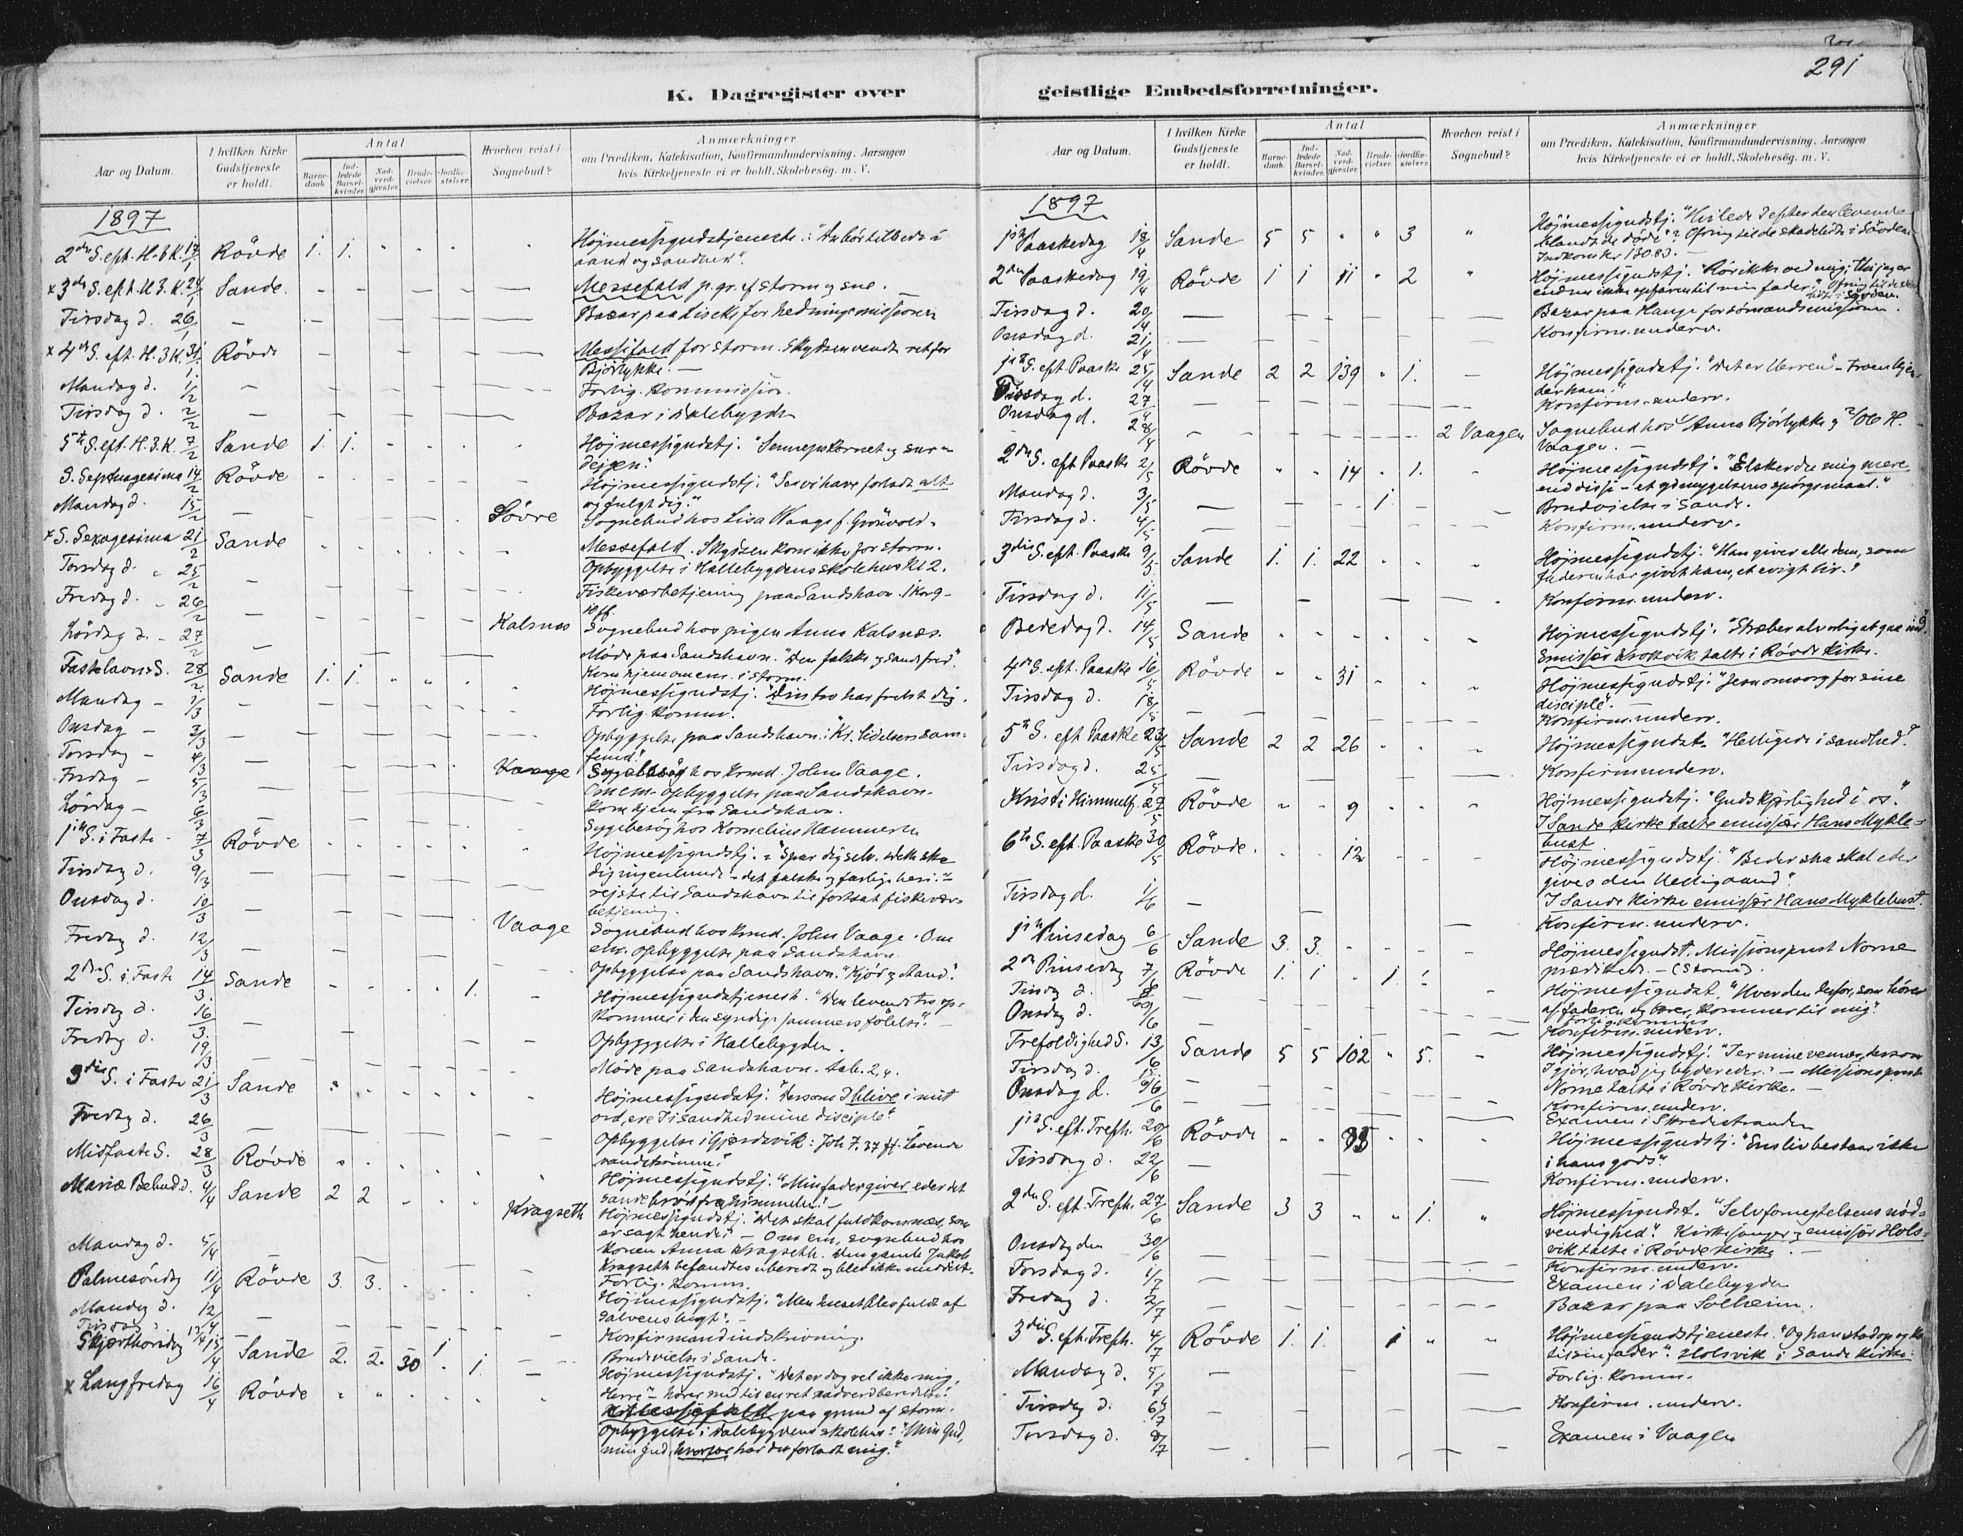 291
K. Dagregister over geistlige Embedsforretninger.
Aar og Datum.
I hvilken Kirke Gudstjeneste er holdt.
Antal
Barnedaab.
Indledede Barselkvinder.
Nadverdgjester.
Brudevielser.
Jordfæstelser.
Hvorhen reist i Sognebud?
Anmærkninger
om Prædiken, Katekisation, Konfirmandundervisning. Aarsagen
hvis Kirketjeneste ei er holdt. Skolebesøg. m. V.
1897
2den S. eft. H. 3 K. 17/1 Røvde 1. 1. Højmessegudstjeneste: "Anbør tilbede i
aand og sandhed".
x 3die S. eft. H. 3 K. 24/1 Sande. Messefald p. gr. af storm og sne. —
Tirsdag d. 26/1 — Bazar paa Liset for hedningemissionen
x 4de S. eft. H. 3 K. 31/1 Røvde Messefald for storm. Skydsen vendt ret for
Bjørlykke. —
Mandag d. 1/2 — Forlig. Kommission.
Tirsdag d. 2/2 — Bazar i Dalebygden
5te S. eft. H. 3. K. 7/2 Sande 1. 1. Højmessegudstj. "Sennepskornet og sur-
dejgen."
S. Septuagesima 14/2 Røvde Højmessegudstj. "Se vi have forladt alt
og fulgt dig."
Mandag d. 15/2 — Søvre Sognebud hos Lisa Waage f. Grønvold.
x S. Sexagesima 21/2 Sande Messefald. Skydsen kom ikke for storm.
Torsdag d. 25/2 — Opbyggelse i Hallebygdens skolehus Kl 2.
Fredag d. 26/2 — Fiskeværbetjening paa Sandshavn. 1 Kor 9-
Lørdag d. 27/2 — Kalsnes Sognebud hos pigen Anna Kalsnæs.
Møde paa Sandshavn. "Den falske og sande fred".
Fastelavns S. 28/2 Sande 1. 1. Kom hjem om em. i storm.
Højmessegudstj. "Din tro har frelst dig.
Mandag — 1/3 — Forlig. Komm.
Onsdag — 3/3 — Opbyggelse paa Sandshavn: "Kr. lidelsers sam-
fund".
Torsdag — 4/3 — Vaage Sygebesøg hos krmd. John Vaage.
Fredag — 5/3 Om em. opbyggelse paa Sandshavn.
Lørdag — 6/3 — Kom hjem fra Sandshavn.
Sygebesøg hos Kornelius Hammersen
1ste S. i Faste 7/3 Røvde Højmessegudstj. "Spar dig selv. Dette ske
dig ingenlunde – det falske og farlige
Tirsdag d. 9/3 rejste til Sandshavn til fortsat fiskevær-
betjening.
Onsdag d. 10/3 — Vaage Sognebud hos krmd. John Vaage. Om
em. opbyggelse paa Sandshavn.
Fredag d. 12/3 — Opbyggelse paa Sandshavn. "Kjød og Aand".
2den S. i Faste 14/3 Sande 1. Højmessegudstjeneste. "Den levende tro op-
kommer i den syndige jammersfølelse". —
Tirsdag d. 16/3 — Opbyggelse i Hallebygden.
Fredag d. 19/3 — Møde paa Sandshavn. Aab. 2, 4.
3die S. i Faste 21/3 Sande Højmessegudstj. "Dersom I blive i mit
ord, ere I i sandhed mine disciple"
Fredag d. 26/3 — Opbyggelse i Gjerdevik: Joh 7. 37 ff. Levende
vandstrømme."
Midfaste S. 28/3 Røvde Højmessegudstj. "Min fader giver eder det
sande brød fra himmelen." —
Mariæ Bebud d. 4/4 Sande 2 2 Kragseth Højmessegudstj. "Det skal fuldkommes, som
er sagt hende". — Om em. sognebud hos
konen Anna Kragseth. Den gamle Jakob
Kragseth befandtes uberedt og blev ikke meddelt.
Mandag d. 5/4 — Forlig. Komm.
Palmesøndag 11/4 Røvde 3 3. Højmessegudstj. "Men huset blev fuldt af
salvens lugt". —
Mandag d. 12/4 — Konfirmandindskrivning.
Tirsdag 13/4 Brudevielse i Sande.
Skjærthorsdag 15/4 Sande 2. 2. 30 1 1. Højmessegudstj. "Det er dog vel ikke mig,
Herre" – hører med til en ret nadverdberedelse.
x Langfredag 16/4 Røvde Messefald paa grund af storm.
Opbyggelse i Dalebygdens skolehus: "Min Gud,
min Gud, hvorfor har du forladt mig."
1897
1ste Paaskedag 18/4 Sande 5 5 3 Højmessegudstj. "Hvi lede I efter den levende
blandt de døde"? Ofring til de skadelidte i Søvden.
Indkom kr 130.83. —
2den Paaskedag 19/4 Røvde 1 1 11 2 Højmessegudstj. Rør ikke ved mig; thi jeg er
endnu ikke opfaren til min fader." Ofring til de skade-
lidte i Søvden.
Tirsdag d. 20/4 — Bazar paa Hauge for sømandsmissionen.
Onsdag d. 21/4 — Konfirm. underv.
1ste S. eft. Paaske 25/4 Sande 2 2 139 1. Højmessegudstj. "Det er Herren" –
Tirsdag d. 27/4 Konfirm. underv.
Onsdag d. 28/4 — 2 Vaagen Sognebud hos 1/ Anna Bjørlykke og 2/ Ole H.
Vaagen. —
2den S. eft Paaske 2/5 Røvde 14 1. Højmessegudstj. "Elsker du mig mere,
end disse – et ydmygelsens spørgsmaal."
Mandag d. 3/5 — 1. Brudevielse i Sande.
Tirsdag d. 4/5 — Konfirm. underv.
3die S. eft. Paaske 9/5 Sande 1. 1. 22 Højmessegudstj. "Han giver alle dem, som
faderen har givet ham, et evigt liv."
Tirsdag d. 11/5 — Konfirm. underv.
Bededag d. 14/5 Sande Højmessegudstj. "Stræber alvorlig at gaa ind".
Emissær Krokvik talte i Røvde Kirke.
4de S. eft. Paaske 16/5 Røvde 31 Højmessegudstj: "Jesu omsorg for sine
disciple". —
Tirsdag d. 18/5 — Konfirm. underv.
5te S. eft Paaske 23/5 Sande 2 2 26 Højmessegudst. "Hellige de i sandhed".
Tirsdag d. 25/5 — Konfirm. underv.
Kristi Himmelf. 27/5 Røvde 9 Højmessegudstj. "Guds kjærlighed i os".
I Sande Kirke talte emissær Hans Mykle-
bust
6te S. eft. Paaske 30/5 Røvde. 12 Højmessegudstj. "Beder saa skal eder
gives den Helligaand".
I Sande Kirke emissær Hans Myklebust.
Tirsdag d. 1/6 — Konfirm. underv.
1ste Pinsedag 6/6 Sande 3. 3. Højmessegudst. Missionsprest Norne
prædikede. — (Storm).
2den Pinsedag 7/6 Røvde 1. 1 1 1. Højmessegudst. "Hver den derfor, som hører
af faderen og lærer, kommer til mig."
Tirsdag d. 8/6 — Forlig. Kommis
Onsdag d. 9/6 — Konfirm. underv.
Trefoldigheds S. 13/6 Sande 5 5 102 5. Højmessegudstj. "I er mine venner, dersom
I gjør, hvad jeg byder eder." — Missionsprest
Norne talte i Røvde Kirke. —
Tirsdag d. 15/6 — Konfirm. underv.
Onsdag d. 16/6 — Examen i Skredestranden
1ste S. eft. Trefh. 20/6 Røvde Højmessegudstj. "Ens liv bestaar ikke
i hans gods".
Tirsdag d. 22/6 — Konfirm. underv.
2den S. eft. Trefh. 27/6 Sande 3 3 1. Højmessegudst. "Selvfornegtelsens nød-
vendighed". Kirkesanger og emissær Hols-
vik talte i Røvde kirke. —
Onsdag den 30/6 — Konfirm. underv.
Torsdag d. 1/7 — Examen i Dalebygden
Fredag d. 2/7 — Bazar paa Solheim.
3die S. eft. Trefh. 4/7 Røvde 1. 1. 1 Højmessegudstjeneste. "Og han stod op og kom
til sin fader". Holsvik i Sande Kirke.
Mandag d. 5/7 — Forlig. Komm.
Tirsdag d. 6/7 — Konfirm. underv.
Torsdag d. 8/7 — Examen i Vaagen